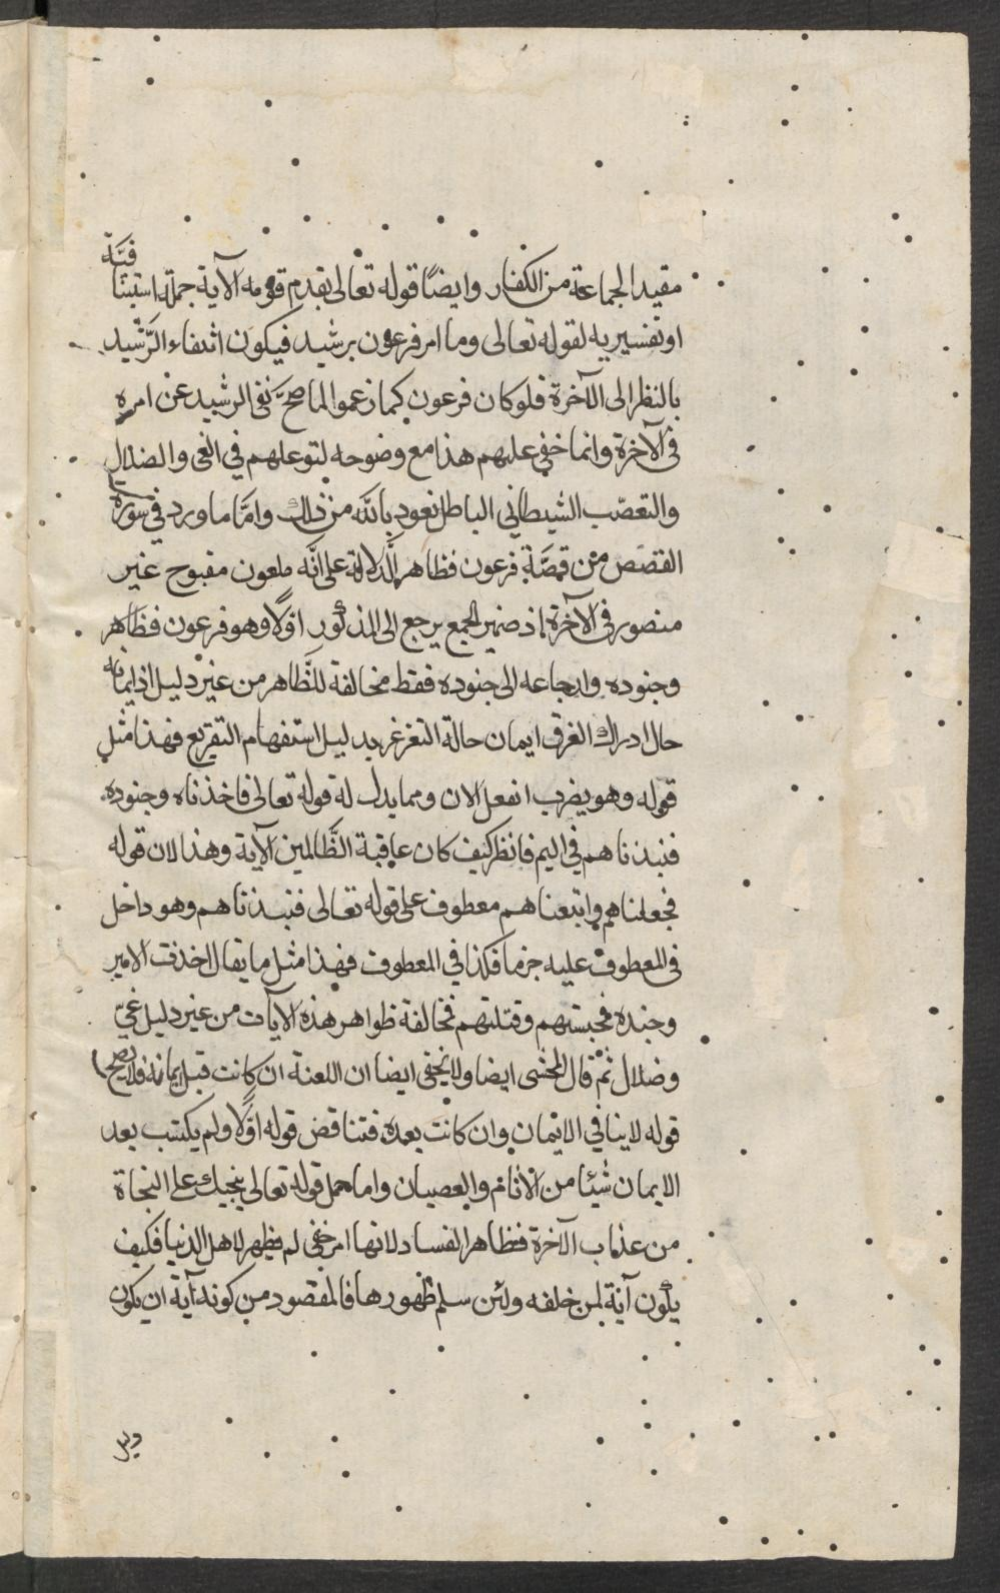 مقيد الجماعة من الكفار وايضًا قوله تعالى يقدم قومه الآية جملة استينافيّة
او تفسيرية لقوله تعالى وما امر فرعون برشيد فيكون انتفاء الرّشيد
بالنظر الى الآخرة فلو كان فرعون كما زعموا لما صحّ نفى الرشيد عن امره
فى الآخرة وانما خفي عليهم هذا مع وضوحه لتوغلهم في الغى والضلال
والتعصّب الشيطاني الباطل نعوذ بالله من ذلك وامّا ما ورد في سورة
القصص من قصّة فرعون فظاهر الدلالة على انّه ملعون مقبوح غير
منصور فى الآخرة اذ ضمير الجمع يرجع الى المذكور اوّلا وهو فرعون فظاهر
وجنوده وارجاعه الى جنوده فقط مخالفة للظّاهر من غير دليل اذ ايمانه
حال ادراك الغرق ايمان حالة التغرغر بدليل استفهام التقريع فهذا مثل
قوله وهو يضرب انفعل الان ومما يدل له قوله تعالى فاخذناه وجنوده
فنبذناهم في اليم فانظر كيف كان عاقبة الظّالمين الآية وهذا لان قوله
فجعلناهم واتبعناهم معطوف على قوله تعالى فنبذناهم وهو داخل
فى المعطوف عليه جزما فكذا في المعطوف فهذا مثل ما يقال اخذت الامير
وجنده فحبستهم وقتلتهم فخالفة ظواهر هذه الآيات من غير دليل غيّ
وضلال ثم قال المحشى ايضا ولا يخفى ايضا ان اللعنة ان كانت قبل ايمانه فلا يصح
قوله لا ينافي الايمان وان كانت بعده فتناقض قوله اوّلا ولم يكتسب بعد
الايمان شيئا من الآثام والعصيان واما حمل قوله تعالى ننجيك على النجاة
من عذاب الآخرة فظاهر الفساد لانها امر خفى لم يظهر لاهل الدنيا فكيف
يكون آية لمن خلفه ولئن سلم ظهورها فالمقصود من كونه آية ان يكون